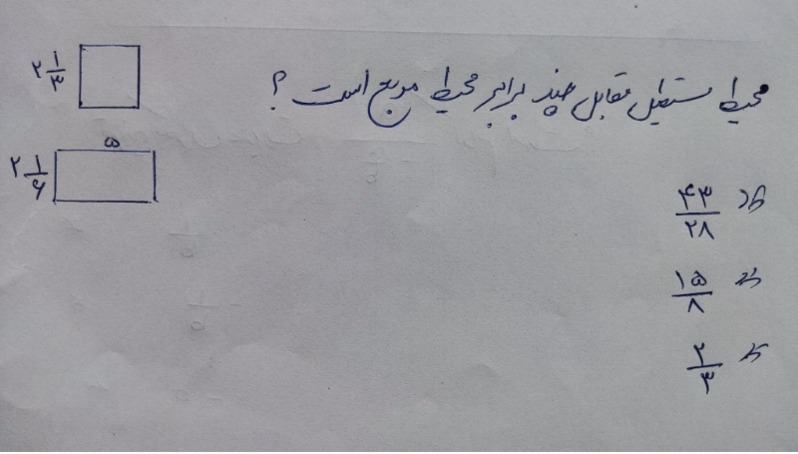 محیط مستطیل مقابل چند برابر محیط مربع است ؟
۲ ۱/۳
۵
۲ ۱/۶
۴۳/۲۸
۱۵/۸
۲/۳